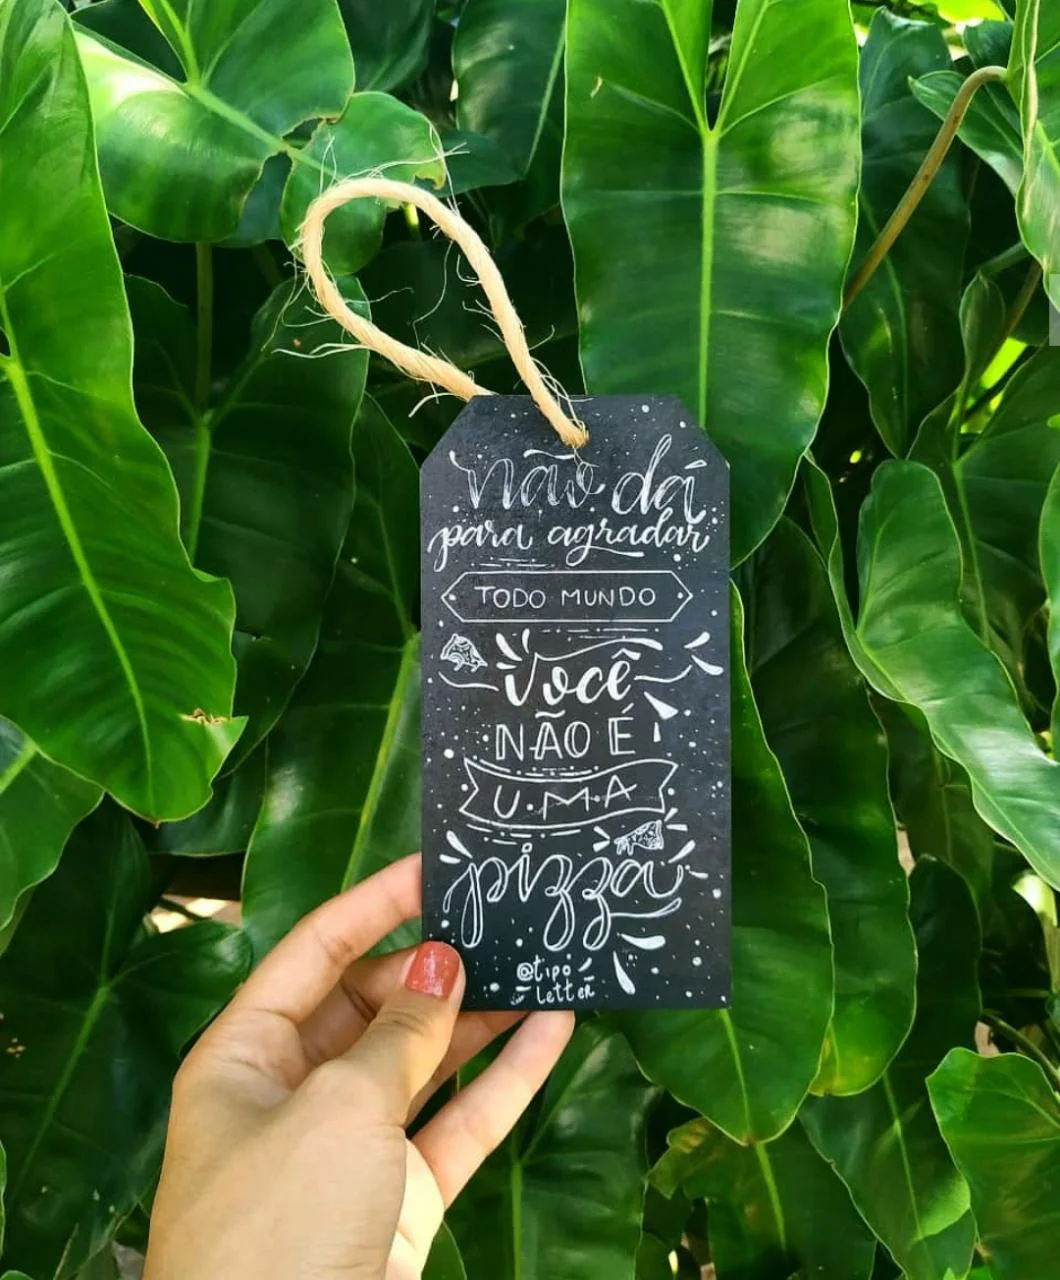 não dá
para agradar
TODO MUNDO
você
NÃO É
U.M.A
pizza
@tipo
letter